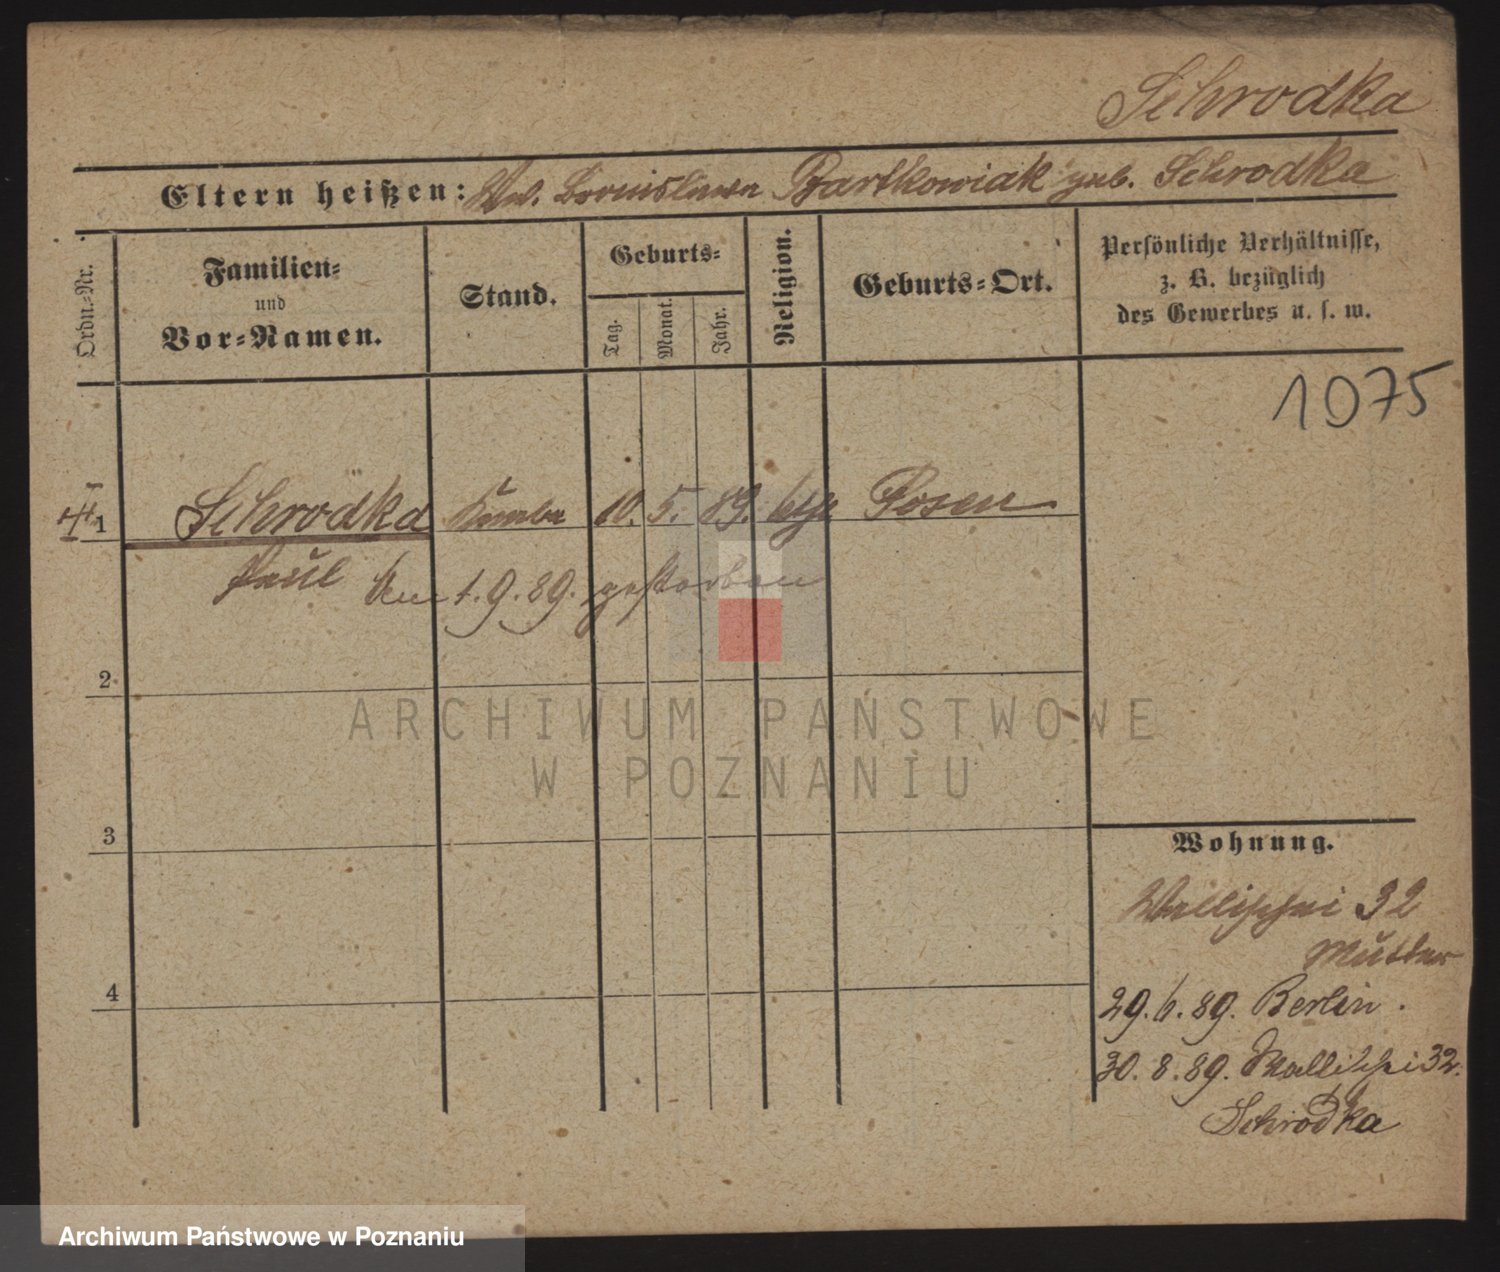 Schrodka
Eltern heißen: Bronislawa Bartkowiak geb. Schrodka
Ordn.-Nr.
Familien-
und
Vor-Namen.
Stand.
Geburts-
Tag.
Monat.
Jahr.
Religion.
Geburts-Ort.
Persönliche Verhältnisse,
z. B. bezüglich
des Gewerbes u. s. w.
1075
1 Schrodka 10. 5. 89. kth Posen
Paul Am 1. 9. 89. gestorben
2
3
4
Wohnung.
Wallischei 32
Mutter
29. 6. 89. Berlin.
30. 8. 89. Wallischei 32.
Schrodka
ARCHIWUM PAŃSTWOWE
W POZNANIU
Archiwum Państwowe w Poznaniu